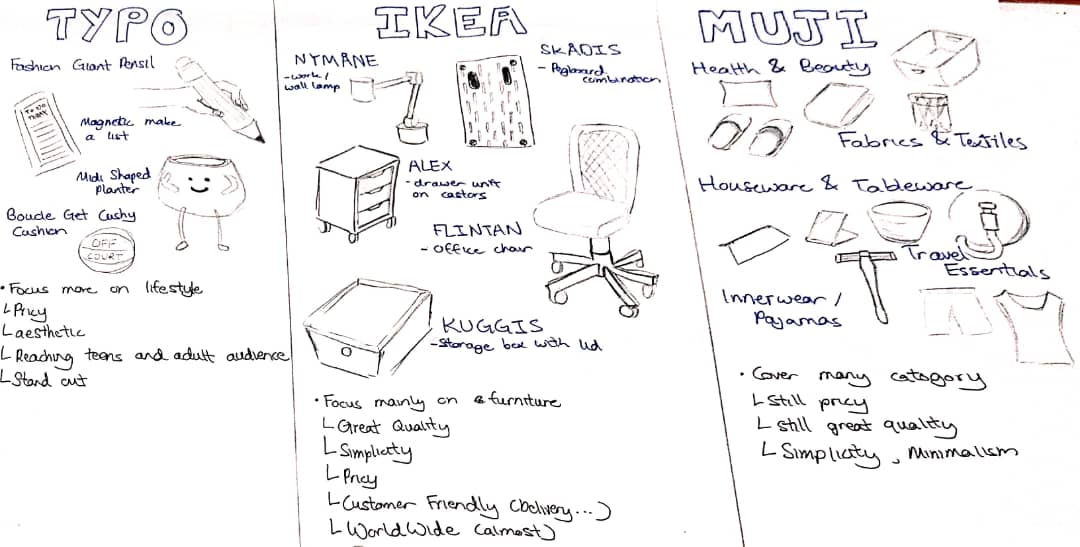 TYPO
Fashion Giant Pensil
TO DO
TODAY
Magnetic make
a list
Midi Shaped
Planter
Boucle Get Cushy
Cushion
OFF
COURT
• Focus more on lifestyle
Pricy
aesthetic
Reaching teens and adult audience
Stand out
IKEA
NYMÅNE
- work/
wall lamp
SKADIS
- Pegboard
combination
ALEX
- drawer unit
on castors
FLINTAN
- Office chair
KUGGIS
- Storage box with lid
• Focus mainly on furniture
Great Quality
Simplicity
Pricy
Customer Friendly (Delivery...)
WorldWide (almost)
MUJI
Health & Beauty
Fabrics & Textiles
Houseware & Tableware
Travel
Essentials
Innerwear /
Pajamas
• Cover many catogory
Still pricy
still great quality
Simplicity, Minimalism